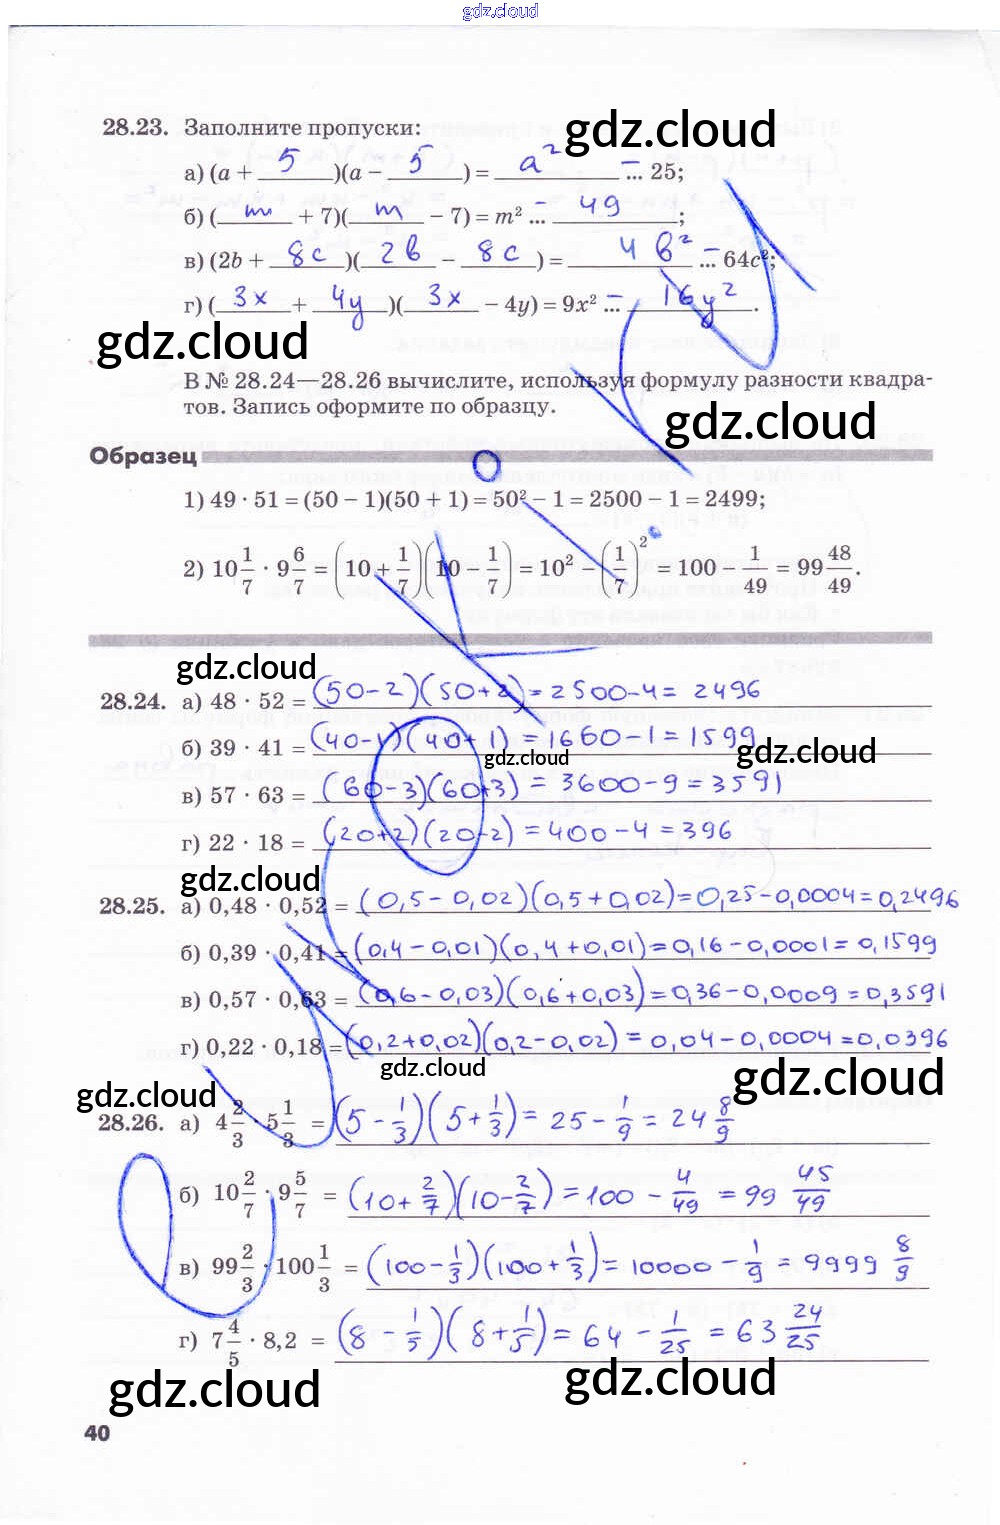 gdz.cloud
28.23. Заполните пропуски: gdz.cloud
а) (a + 5)(a − 5) = a² − ... 25;
б) (m + 7)(m − 7) = m² ... − 49;
в) (2b + 8c)(2b − 8c) = 4b² − ... 64c²;
г) (3x + 4y)(3x − 4y) = 9x² ... − 16y².
gdz.cloud
В № 28.24—28.26 вычислите, используя формулу разности квадра-
тов. Запись оформите по образцу. gdz.cloud
Образец
1) 49 · 51 = (50 − 1)(50 + 1) = 50² − 1 = 2500 − 1 = 2499;
2) 10 1/7 · 9 6/7 = (10 + 1/7)(10 − 1/7) = 10² − (1/7)² = 100 − 1/49 = 99 48/49.
gdz.cloud
28.24. а) 48 · 52 = (50-2)(50+2) = 2500-4 = 2496
б) 39 · 41 = (40-1)(40+1) = 1660-1 = 1599
gdz.cloud gdz.cloud
в) 57 · 63 = (60-3)(60+3) = 3600-9 = 3591
г) 22 · 18 = (20+2)(20-2) = 400-4 = 396
gdz.cloud gdz.cloud
28.25. а) 0,48 · 0,52 = (0,5-0,02)(0,5+0,02) = 0,25-0,0004 = 0,2496
б) 0,39 · 0,41 = (0,4-0,01)(0,4+0,01) = 0,16-0,0001 = 0,1599
в) 0,57 · 0,63 = (0,6-0,03)(0,6+0,03) = 0,36-0,0009 = 0,3591
г) 0,22 · 0,18 = (0,2+0,02)(0,2-0,02) = 0,04-0,0004 = 0,0396
gdz.cloud gdz.cloud gdz.cloud
28.26. а) 4 2/3 · 5 1/3 = (5 - 1/3)(5 + 1/3) = 25 - 1/9 = 24 8/9
б) 10 2/7 · 9 5/7 = (10 + 2/7)(10 - 2/7) = 100 - 4/49 = 99 45/49
в) 99 2/3 · 100 1/3 = (100 - 1/3)(100 + 1/3) = 10000 - 1/9 = 9999 8/9
г) 7 4/5 · 8,2 = (8 - 1/5)(8 + 1/5) = 64 - 1/25 = 63 24/25
gdz.cloud gdz.cloud
40